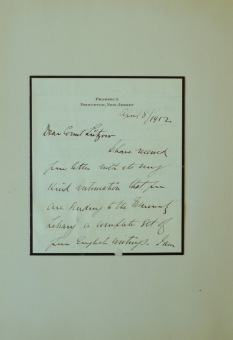 PROSPECT
PRINCETON, NEW JERSEY
April 8/1902
Dear Count Lützow
I have received
your letter with its very
kind intimation that you
are sending to the University
Library a complete set of
your English writings. I am